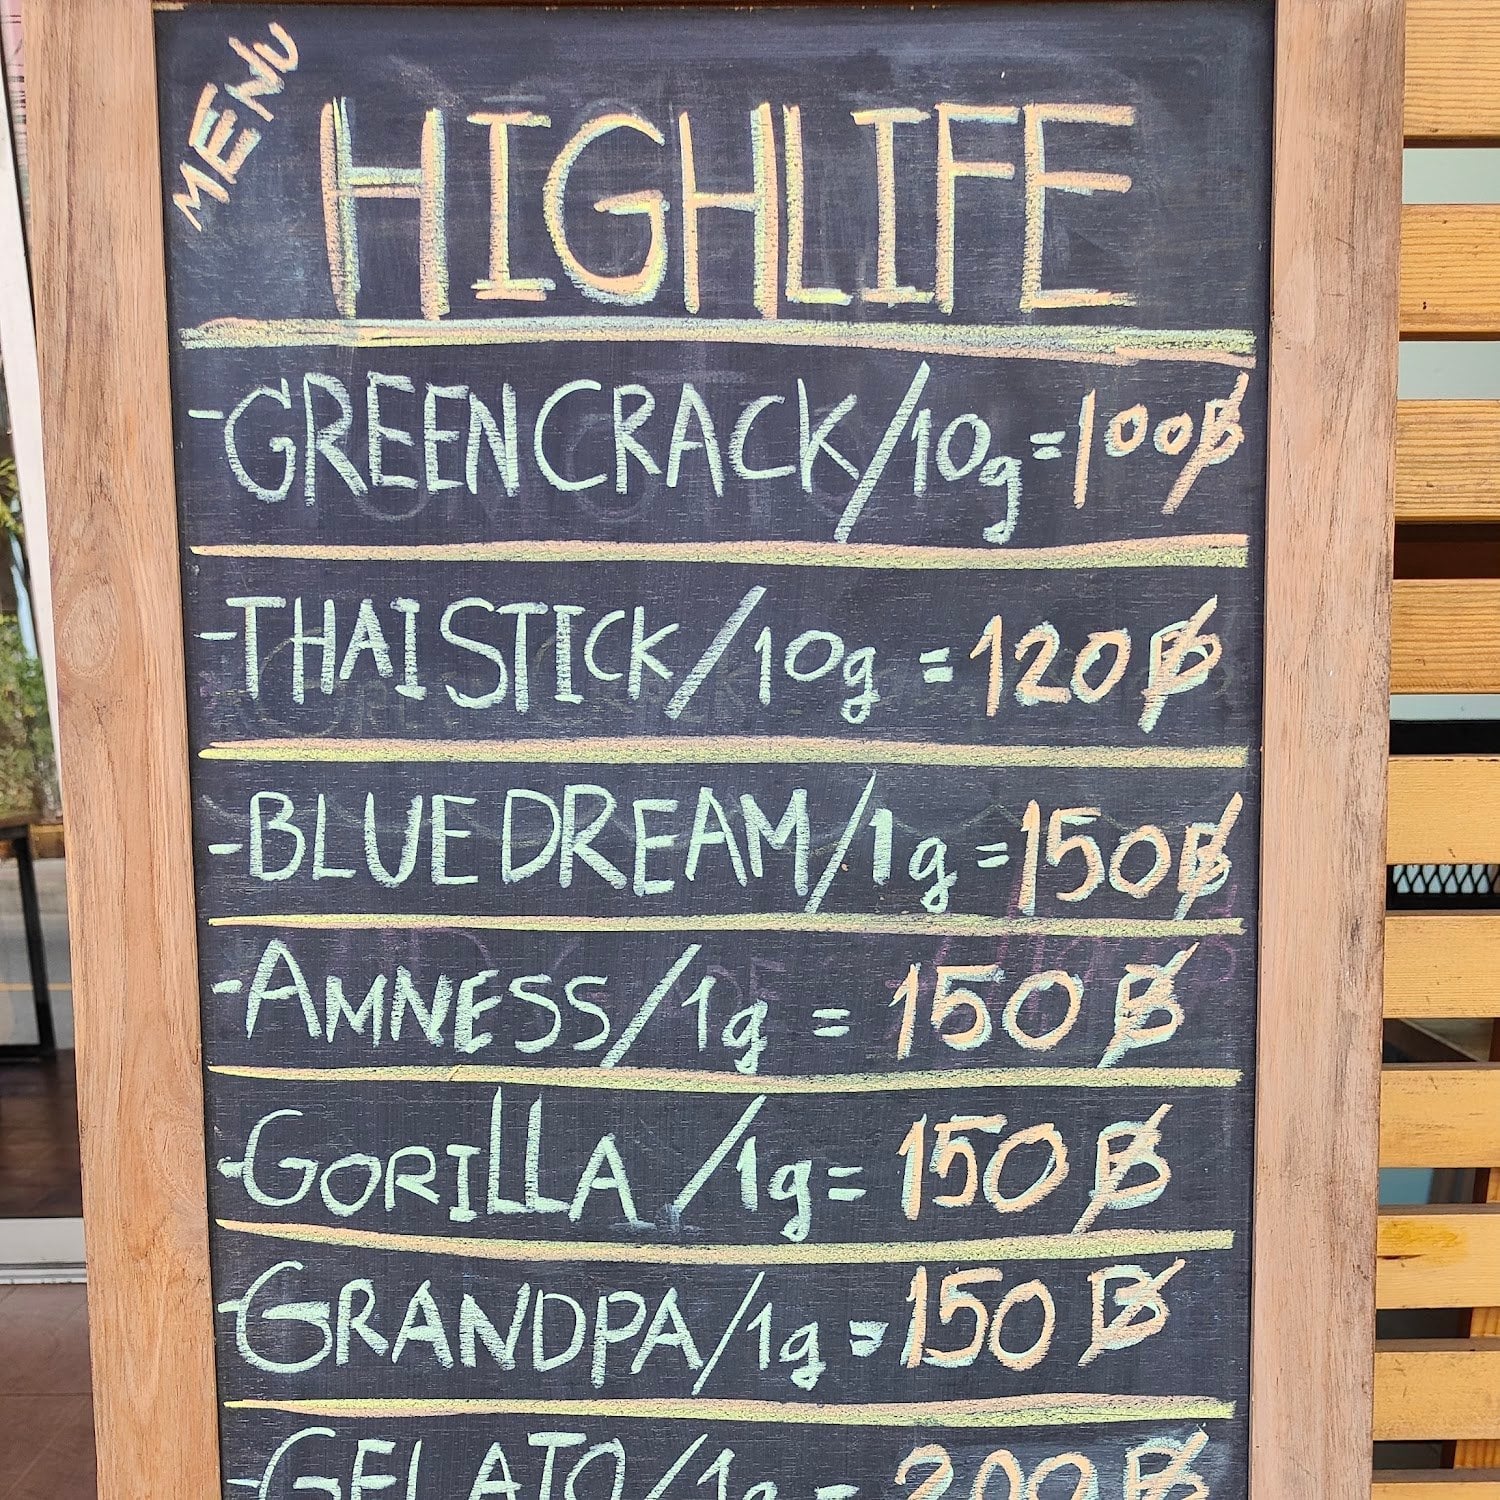 MENU
HIGHLIFE
-GREEN CRACK/10g=100฿
-THAI STICK/10g=120฿
-BLUE DREAM/1g=150฿
-AMNESS/1g=150฿
-GORILLA/1g=150฿
-GRANDPA/1g=150฿
-GELATO/1g=200฿